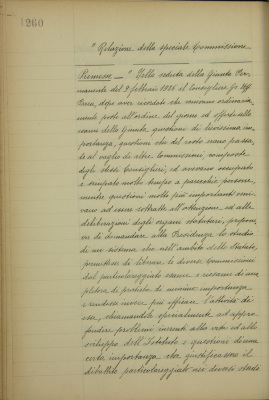 260
" Relazione della speciale Commissione
Premesse — " Nella seduta della Giunta Per-
manente del 9 febbraio 19 il Consigliere
dopo aver ricordato che venivano ordinaria-
mente poste all'ordine del giorno ed offerte allo
esame della Giunta, questioni di lievissima im-
portanza, questioni che del resto erano passa-
te al vaglio di altre Commissioni, composte
degli stessi Consiglieri, ed avevano occupato
e occupate molto tempo a parecchie persone,
mentre questioni molto più importanti veni-
vano ad essere sottratte all'attenzione ed alle
deliberazioni degli organi statutari, propone-
va di demandare alla Presidenza lo studio
di un sistema che nell'ambito dello Statuto,
permettesse di liberare le diverse Commissioni
dal particolareggiato esame e riesame di una
pletora di pratiche di minima importanza
e rendesse invece più efficace l'attività di
esse, chiamandole specialmente ad appro-
fondire problemi inerenti alla vita ed allo
sviluppo dell'Istituto e questioni di una
certa importanza, che giustificassero il
dibattito particolareggiato nei diversi stadi